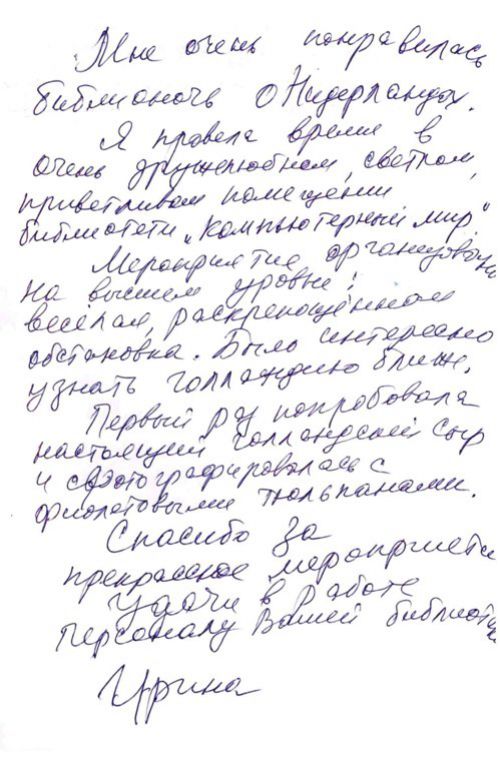 Мне очень понравилась
библионочь о Нидерландах.
Я провела время в
очень дружелюбном, светлом,
приветливом помещении
библиотеки „Компьютерный мир"
Мероприятие организовано
на высшем уровне:
весёлая, раскрепощённая
обстановка. Было интересно
узнать Голландию ближе.
Первый раз попробовала
настоящий голландский сыр
и сфотографировалась с
фиолетовыми тюльпанами.
Спасибо за
прекрасное мероприятие
Удачи в работе
персоналу Вашей библиотеки
Ирина